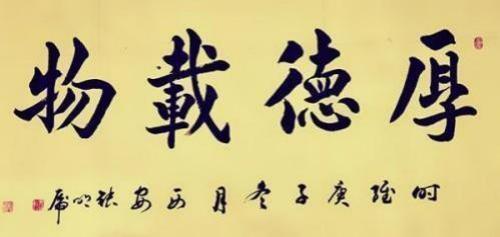 厚德載物
时维庚子冬月西安張明虎